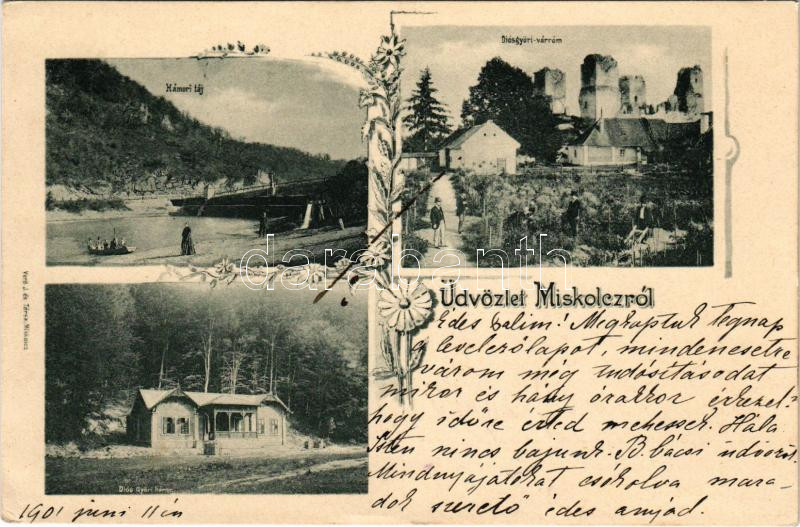 Hámori táj
Diósgyőri-várrom
darabanth
Üdvözlet Miskolczról
Édes Salim! Megkaptuk tegnap
a levelezőlapot, mindenesetre
várom még tudósításodat
mikor és hány órakor érkezel?
hogy időre érted mehessek. Hála
Isten nincs bajunk. B. bácsi üdvözöl.
Mindnyájatokat csókolva mara-
dok szerető édes anyád.
Diós Győri
1901 juni 11 én